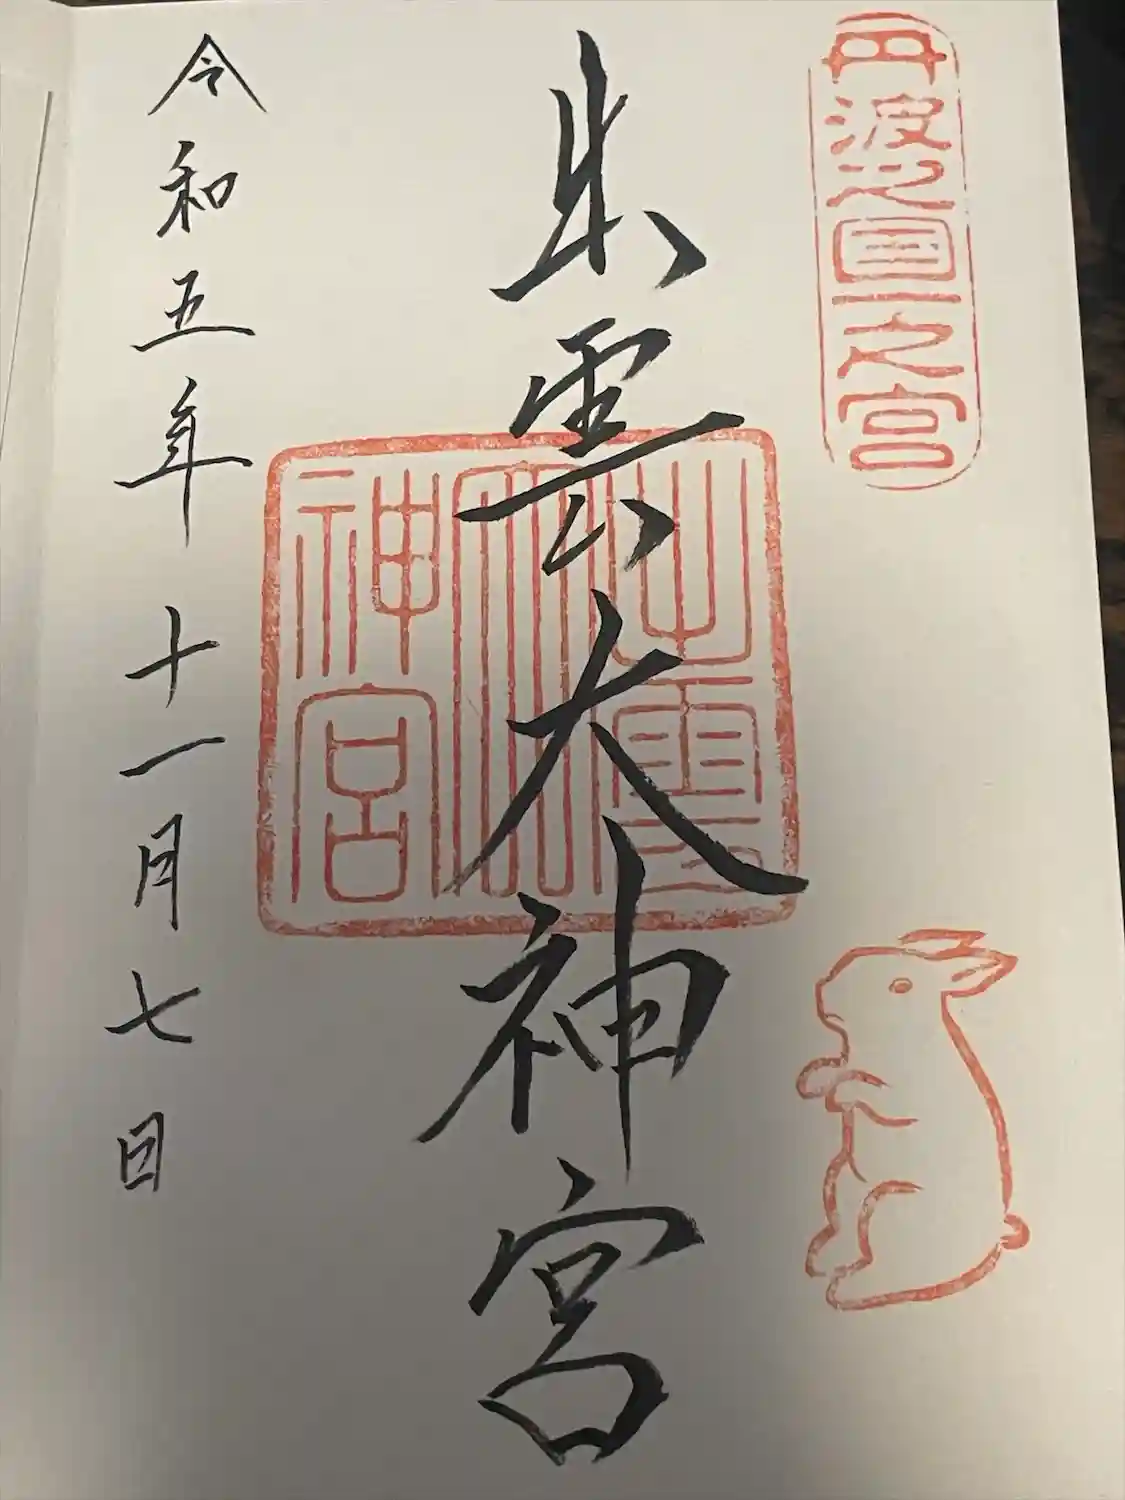 丹波之国一之宮
出雲大神宮
出雲大神宮
令和五年十一月七日